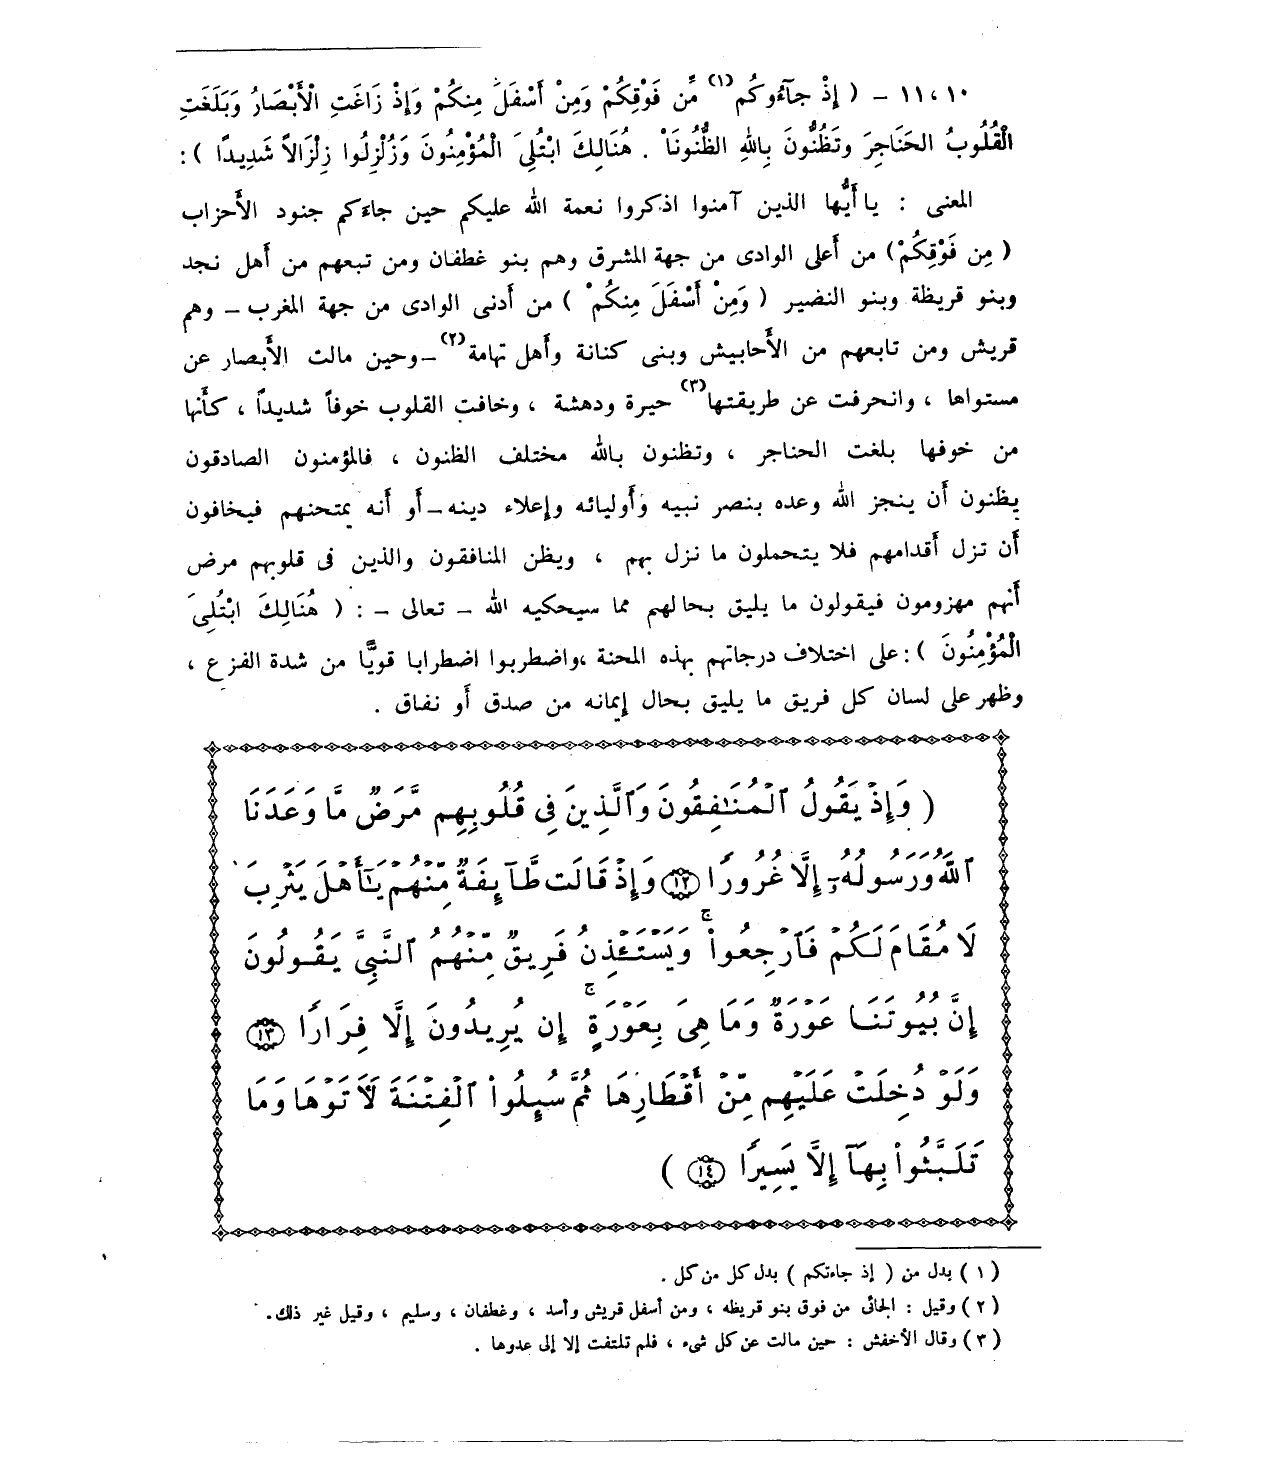 ١٠، ١١ - ( إِذْ جَآءُوكُم(١) مِّن فَوْقِكُمْ وَمِنْ أَسْفَلَ مِنكُمْ وَإِذْ زَاغَتِ الْأَبْصَارُ وَبَلَغَتِ
الْقُلُوبُ الحَنَاجِرَ وتَظُنُّونَ بِاللهِ الظُّنُونَاْ . هُنَالِكَ ابْتُلِىَ الْمُؤْمِنُونَ وَزُلْزِلُوا زِلْزَالاً شَدِيدًا ) :
المعنى : يا أَيُّها الذين آمنوا اذكروا نعمة الله عليكم حين جاءَكم جنود الأَحزاب
( مِن فَوْقِكُمْ) من أَعلى الوادى من جهة المشرق وهم بنو غطفان ومن تبعهم من أَهل نجد
وبنو قريظة وبنو النضير ( وَمِنْ أَسْفَلَ مِنكُمْ ) من أَدنى الوادى من جهة المغرب - وهم
قريش ومن تابعهم من الأَحابيش وبنى كنانة وأَهل تهامة(٢) - وحين مالت الأَبصار عن
مستواها ، وانحرفت عن طريقتها(٣) حيرة ودهشة ، وخافت القلوب خوفاً شديداً ، كأَنها
من خوفها بلغت الحناجر ، وتظنون بالله مختلف الظنون ، فالمؤمنون الصادقون
يظنون أَن ينجز الله وعده بنصر نبيه وأَوليائه وإعلاء دينه - أَو أَنه يمتحنهم فيخافون
أَن تزل أَقدامهم فلا يتحملون ما نزل بهم ، ويظن المنافقون والذين فى قلوبهم مرض
أَنهم مهزومون فيقولون ما يليق بحالهم مما سيحكيه الله - تعالى - : ( هُنَالِكَ ابْتُلِىَ
الْمُؤْمِنُونَ ) : على اختلاف درجاتهم بهذه المحنة ،واضطربوا اضطرابا قويًّا من شدة الفزع ،
وظهر على لسان كل فريق ما يليق بحال إيمانه من صدق أَو نفاق .
( وَإِذْ يَقُولُ ٱلْمُنَٰفِقُونَ وَٱلَّذِينَ فِى قُلُوبِهِم مَّرَضٌ مَّا وَعَدَنَا
ٱللَّهُ وَرَسُولُهُۥٓ إِلَّا غُرُورًا ١٢ وَإِذْ قَالَت طَّآئِفَةٌ مِّنْهُمْ يَٰٓأَهْلَ يَثْرِبَ
لَا مُقَامَ لَكُمْ فَٱرْجِعُوا۟ ۚ وَيَسْتَـْٔذِنُ فَرِيقٌ مِّنْهُمُ ٱلنَّبِىَّ يَقُولُونَ
إِنَّ بُيُوتَنَا عَوْرَةٌ وَمَا هِىَ بِعَوْرَةٍ ۚ إِن يُرِيدُونَ إِلَّا فِرَارًا ١٣
وَلَوْ دُخِلَتْ عَلَيْهِم مِّنْ أَقْطَارِهَا ثُمَّ سُئِلُوا۟ ٱلْفِتْنَةَ لَأَتَوْهَا وَمَا
تَلَبَّثُوا۟ بِهَآ إِلَّا يَسِيرًا ١٤ )
( ١ ) بدل من ( إذ جاءتكم ) بدل كل من كل .
( ٢ ) وقيل : الجائى من فوق بنو قريظه ، ومن أسفل قريش وأسد ، وغطفان ، وسليم ، وقيل غير ذلك.
( ٣ ) وقال الأخفش : حين مالت عن كل شىء ، فلم تلتفت إلا إلى عدوها .